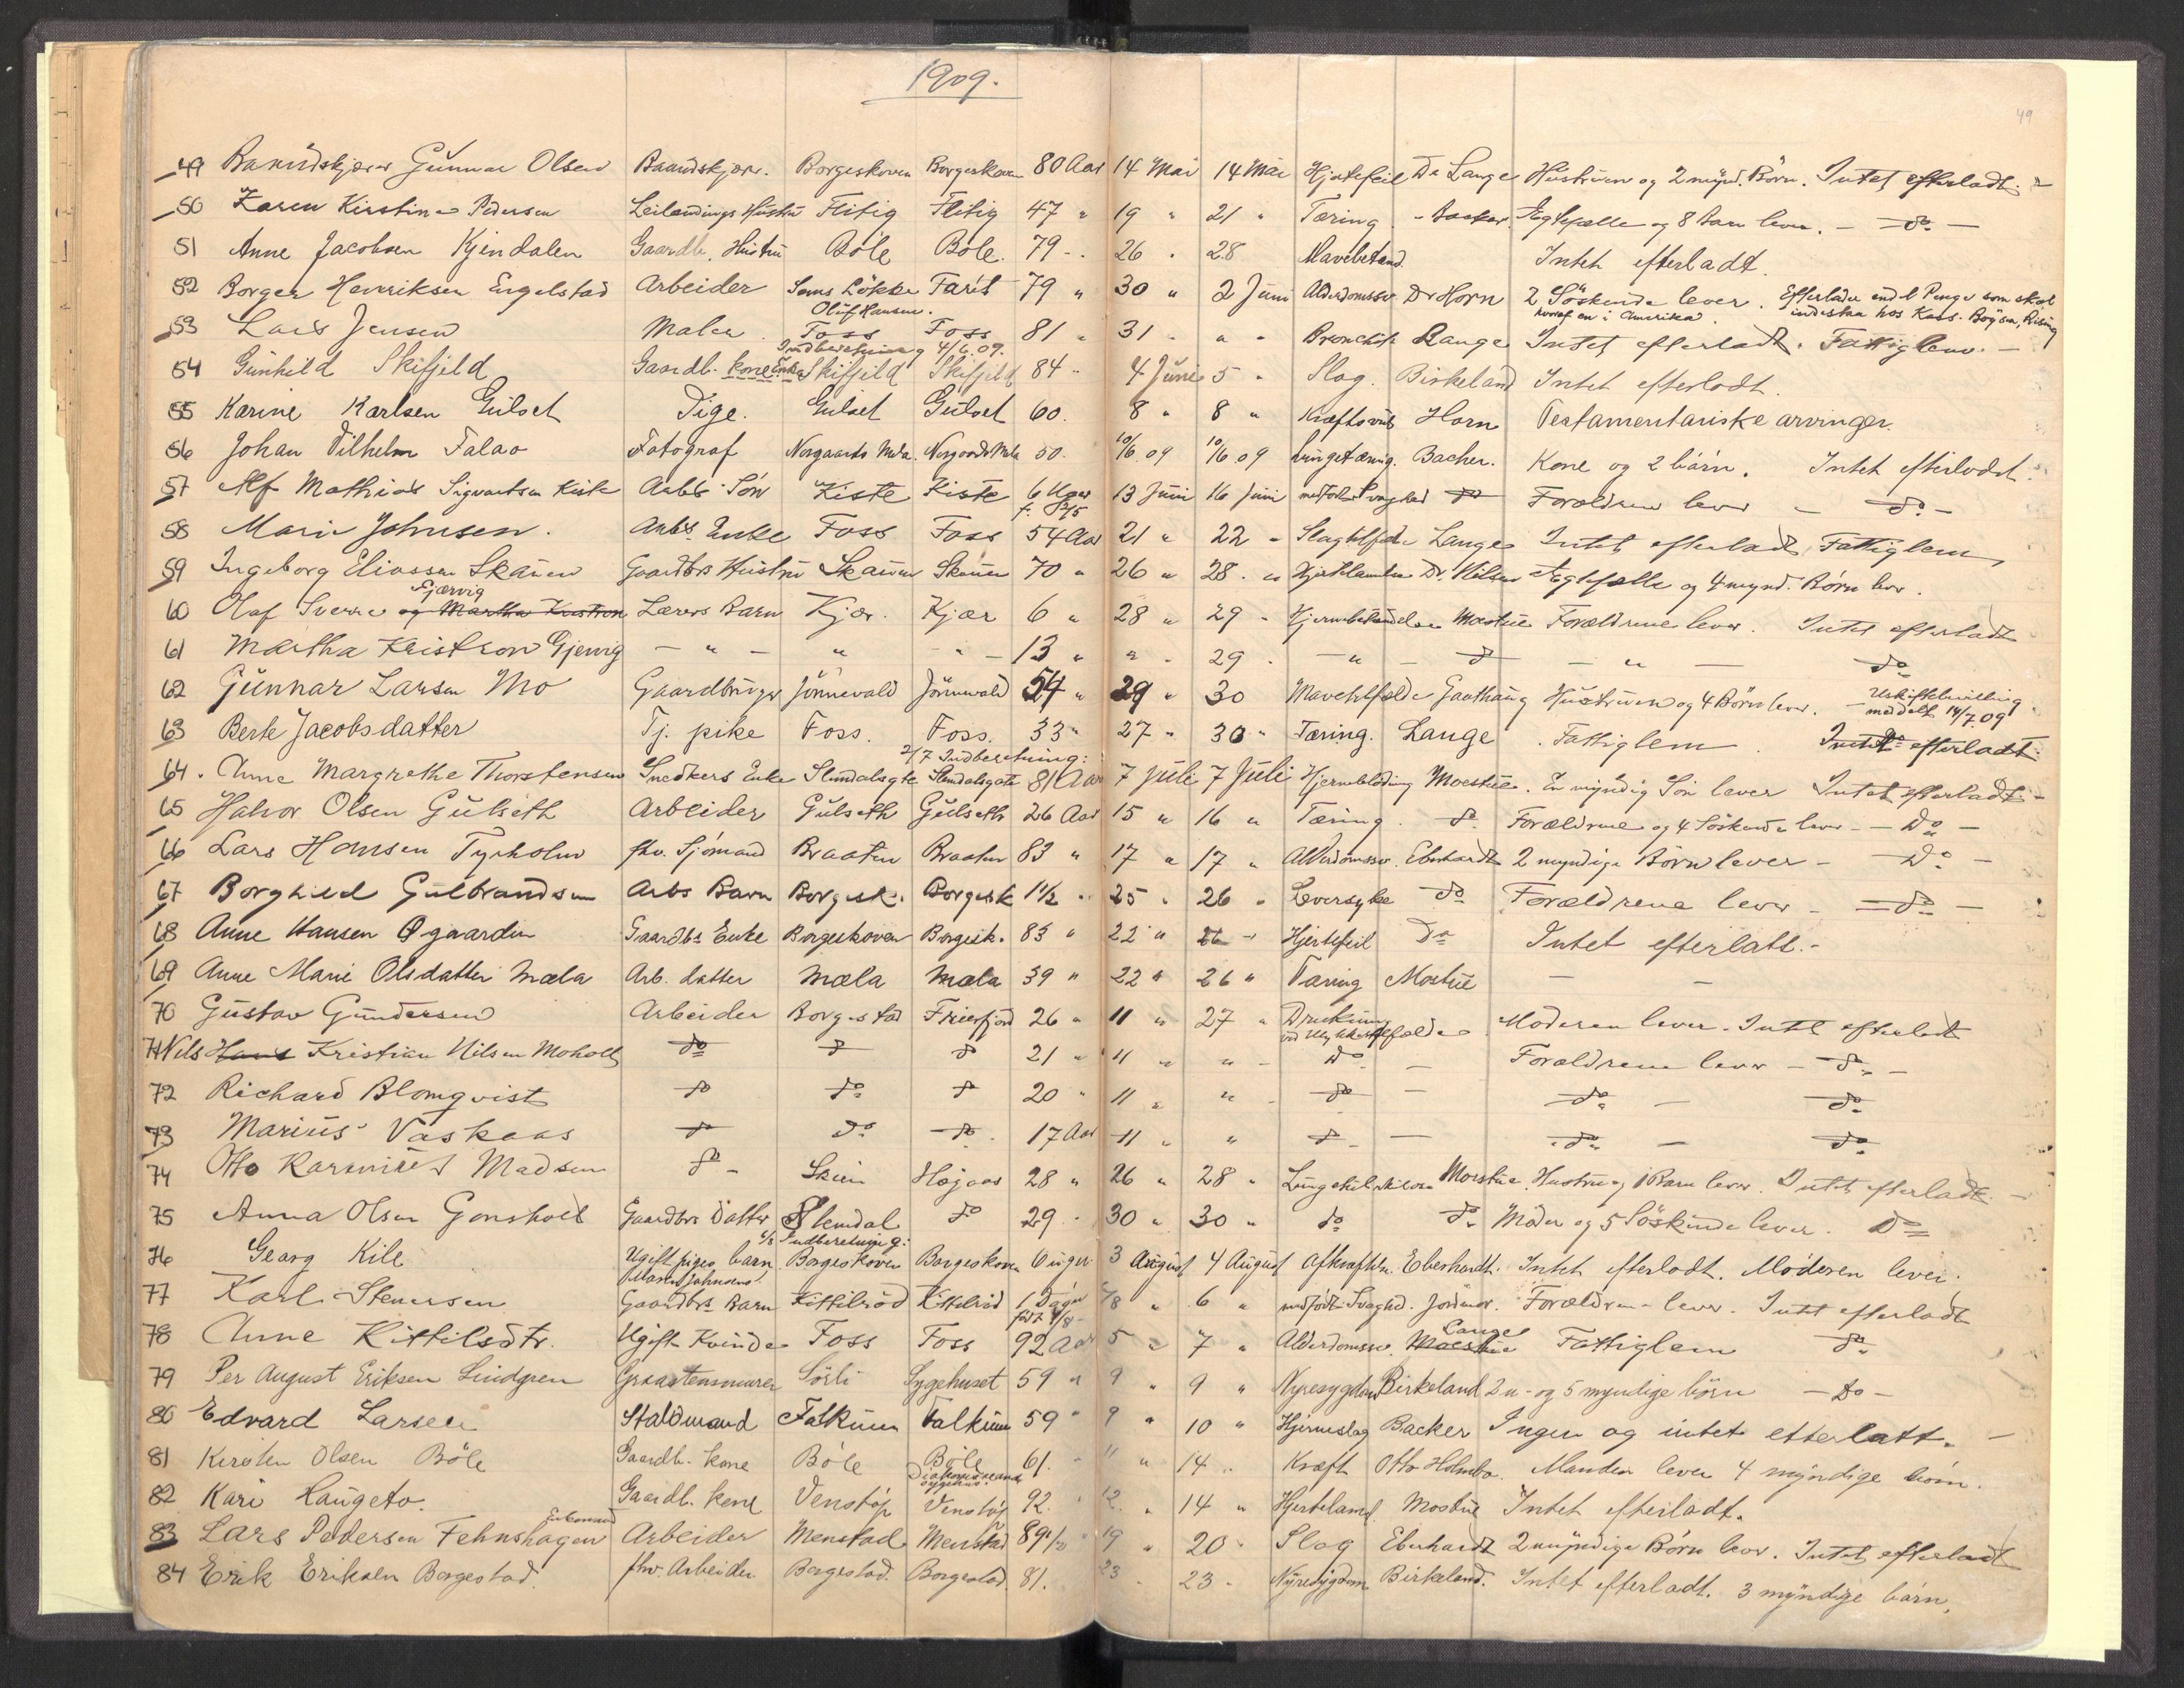 1909.
49
49 Baandskjærer Gunnar Olsen Baandskjær. Borgeskoven Borgeskoven 80 Aar 14 Mai 14 Mai Hjertefeil Dr Lange Hustruen og 2 mynd. Børn. Intet efterladt. -
50 Karen Kirstine Pedersen Leilendings Hustru Flitig Flitig 47 " 19 " 21 " Tæring - Backer Egtefælle og 8 Barn lever. - do -
51 Anne Jacobsen Kjendalen Gaardb. Hustru Böle Böle. 79 - 26 " 28 Mavebetænd. Intet efterladt.
52 Borger Henriksen Engelstad Arbeider Sems Løkke Farit 79 " 30 " 2 Juni Alderdomssv. Dr Horn 2 Söskende lever. Efterlader endel Penge som skal
Oluf Hansen. hvoraf en i Amerika. indestaa hos Kass. Boysen, Rising
53 Lars Jensen Maler Foss Foss 81 " 31 " " Bronchit Lange Intet efterladt. Fattiglem. -
Indberetning 4/6.09.
54 Gunhild Skifjeld Gaardb. kone Enke Skifjeld Skifjeld 84 - 4 Juni 5 " Slag. Birkeland Intet efterladt.
55 Karine Karlsen Gulset Pige. Gulset Gulset 60. 8 " 8 " Kræftsvul Horn Testamentariske arvinger.
56 Johan Vilhelm Falao Fotograf Norgaards Mæla. Norgaards Mæla 50. 10/6.09 10/6.09 Lungetæring. Bacher. Kone og 2 børn. Intet efterladt.
57 Alf Mathias Sigvartsen Kiste Arbs Sön Kiste Kiste 6 Uger 13 Juni 16 Juni medfødt Svaghed do Forældrene lever - do -
58 Marie Johnsen. Arbs. Enke Foss Foss 54 Aar 21 " 22 " Slagtilfælde Lange Intet efterladt, Fattiglem
59 Ingeborg Eliassen Skauen Gaardbrs Hustru Skauen Skauen 70 " 26 " 28 " Hjertelamhed Dr. Nilsen Egtefælle og 4 mynd. Børn lev.
Gjærvig
60 Olaf Sverre og Martha Kristron Lærers Barn Kjær. Kjær 6 " 28 " 29 " Hjernebetændelse Moestue Forældrene lever. Intet efterladt
61 Martha Kristron Gjervig - " - " - " - 13 " " 29 - " - do - " - do
62 Gunnar Larsen Mo Gaardbruger Jönnevald Jönnevald 54 " 29 " 30 Mavetilfælde Gaathaug Hustruen og 4 Børn lever. - Uskiftebevilling
meddelt 14/7.09
63 Berte Jacobsdatter Tj. pike Foss. Foss. 33 " 27 " 30 " Tæring. Lange Fattiglem. Intet efterladt.
2/7 Indberetning:
64. Anne Margrethe Thorstensen Snedkers Enke Slemdalsgt Slemdalsgate 81 Aar 7 Juli 7 Juli Hjerneblödning Moestue. En myndig Sön lever Intet efterladt -
65 Halvor Olsen Gulseth Arbeider Gulseth Gulseth 26 Aar 15 " 16 " Tæring. do Forældrene og 4 Söskende lever - do -
66 Lars Hansen Tyrholm fhv. Sjömand Braaten Braaten 83 " 17 " 17 " Alderdomssv. Eberhardt 2 myndige Børn lever - do -
67 Borghild Gulbrandsen Arbs Barn Borgesk. Borgesk 1½ " 25 " 26 " Leversyke do Forældrene lever - do -
68 Anne Hansen Øgaarden Gaardbs Enke Borgeskoven Borgesk. 83 " 22 " 26 " Hjertefeil do Intet efterlatt. -
69 Anne Marie Olsdatter Mæla Arb. datter Mæla Mæla 39 " 22 " 26 " Tæring Mostue - -
70 Gustav Gundersen Arbeider Borgestad Frierfjord 26 " 11 " 27 " Drukning Moderen lever. Intet efterladt
ved Ulykkestilfælde
71 Nils Hans Kristian Nilsen Moholt do do do 21 " 11 " " - do - Forældrene lever - do -
72 Richard Blomqvist do do do 20 " 11 " " - do - do - do
73 Marius Vaskaas do do do. 17 Aar 11 " " do - do - do
74 Otto Karenius Madsen do - Skien Højaas 28 " 26 " 28 " Moestue. Hustru og 1 Barn lever. Intet efterladt. -
75 Anna Olsen Gonsholt Gaardbrs Datter Slemdal do 29 - 30 " 30 " do do Moder og 5 Söskende lever. do
Indberetning:
76 Georg Kile Ugift piges barn Borgeskoven Borgeskoven 6 uger. 3 August 4 August Afkræftelse. Eberhardt. Intet efterladt. Moderen lever.
Maren Johnsens.
77 Karl Stenersen Gaardbrs Barn Kittilröd Kittilröd 1 Dag " 6 " medfødt Svaghed. Jordmor. Forældrene lever. Intet efterladt
78 Anne Kittilsdtr. Ugift Kvinde Foss Foss 92 Aar 5 " 7 " Alderdomssv. Moestue Lange Fattiglem do
79 Per August Eriksen Lindgren Graastensmurer Sörli Sygehuset 59 " 9 " 9 " Nyresygdom Birkeland 2 u- og 5 myndige børn - do -
80 Edvard Larsen Staldmand Falkum Falkum 59 " 9 " 10 " Hjerneslag Backer Ingen og intet etterlatt. -
81 Kirsten Olsen Böle Gaardb. kone Böle Böle 61. - 11 " 14 " Kræft Otto Holmbo. Manden lever 4 myndige børn.
82 Kari Haugeto. Gaardb. kone Venstöp Venstöp 92. 12. " 14 " Hjertelamh. Mostue Intet efterladt.
Enkemand
83 Lars Pedersen Fehnshagen Arbeider Menstad Menstad 89 19 " 20 " Slag Eberhardt 2 myndige Børn lever. Intet efterladt
84 Erik Eriksen Borgestad. fhv. Arbeider Borgestad. Borgestad. 81. 23 - 23 - Nyresygdom Birkeland. Intet efterladt. 3 myndige børn.